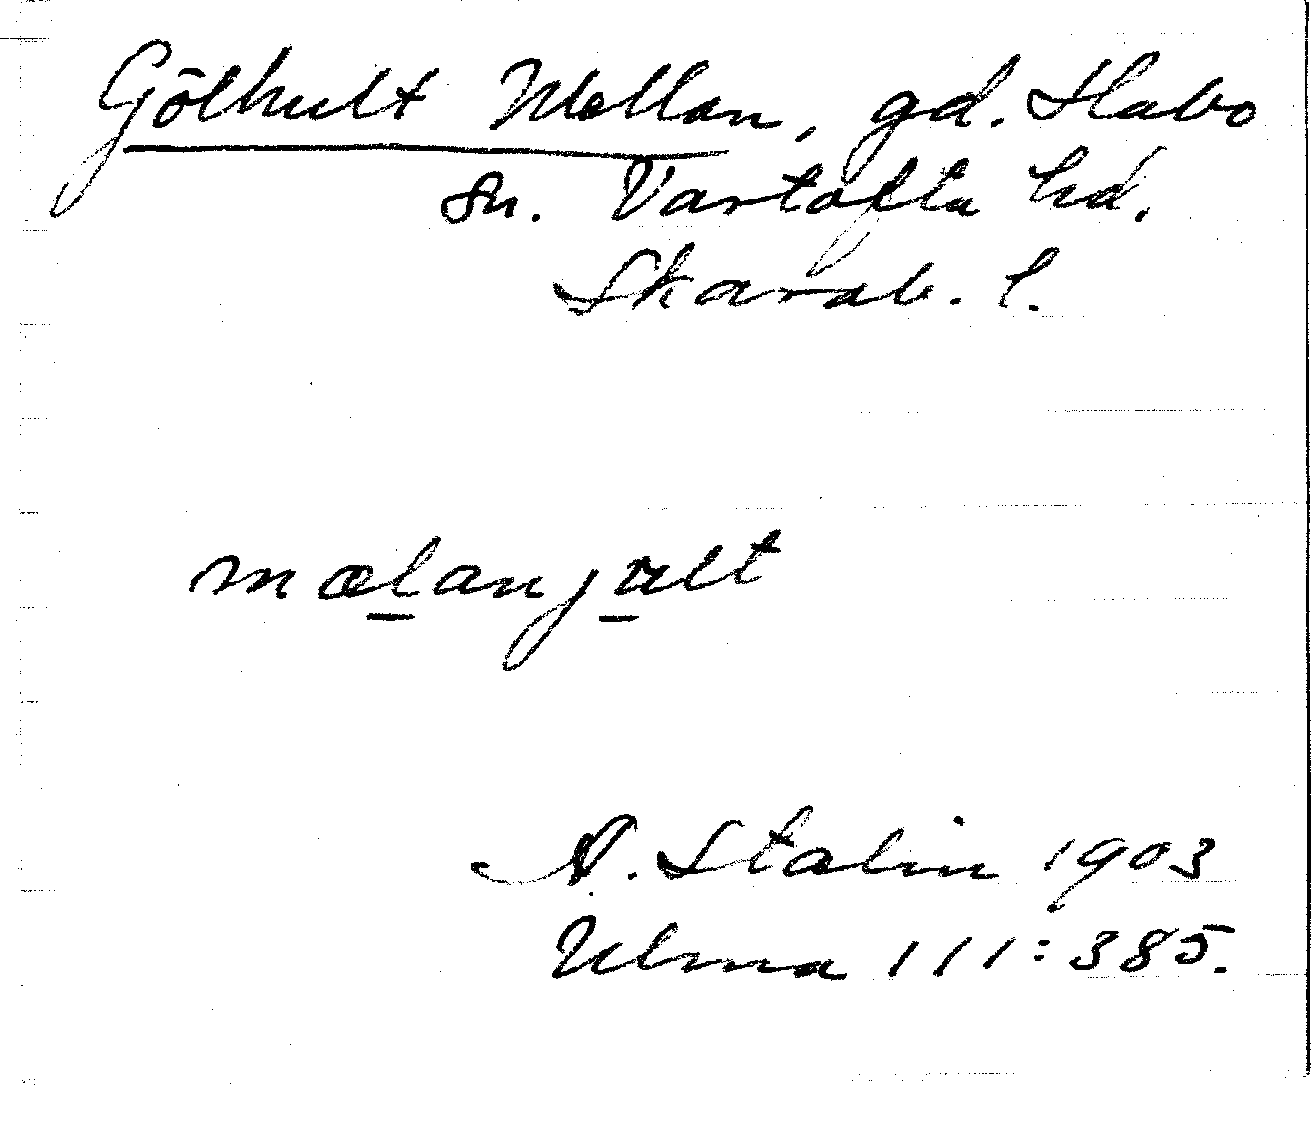 Gölhult Mellan, gd. Habo
sn. Vartofta hd.
Skarab. l.
mælanjʉlt
A. Stalin 1903
Ulma 111:385.